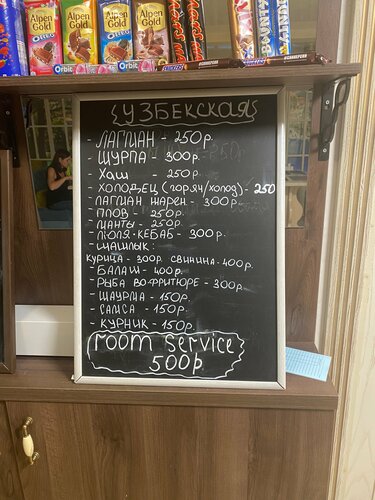 Alpen Gold
OREO
Alpen Gold
Alpen Gold
BOUNTY
Orbit
SNICKERS
SNICKERS
{УЗБЕКСКАЯ}
- ЛАГМАН - 250р.
- ШУРПА - 300р.
- ХАШ - 250р.
- ХОЛОДЕЦ (горяч/холод) - 250
- ЛАГМАН ЖАРЕН. - 300р.
- ПЛОВ - 250р.
- МАНТЫ - 250р.
- ЛЮЛЯ-КЕБАБ - 300р.
- ШАШЛЫК:
КУРИЦА - 300р. СВИНИНА - 400р.
- БАЛАШ - 400р.
- РЫБА ВО ФРИТЮРЕ - 300р.
- ШАУРМА - 150р.
- САМСА - 150р.
- КУРНИК - 150р.
room service
500р